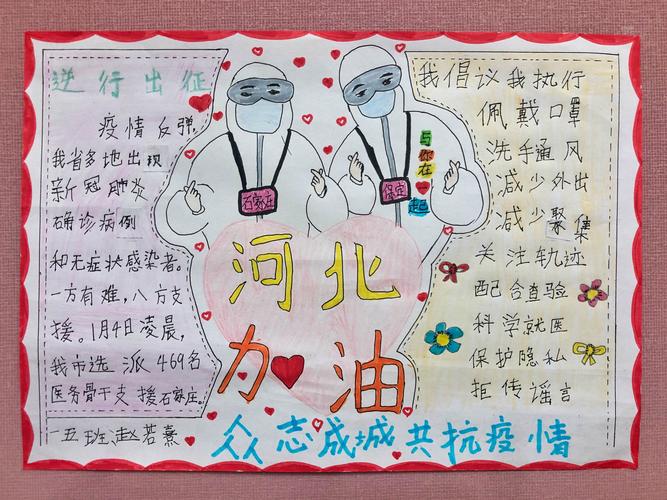 逆行出征
疫情反弹,
我省多地出现
新冠肺炎
确诊病例
和无症状感染者。
一方有难,八方支
援。1月4日凌晨,
我市选派469名
医务骨干支援石家庄。
一五班赵若熹
石家庄
保定
与你在一起
河北
加油
众志成城共抗疫情
我倡议我执行
佩戴口罩
洗手通风
减少外出
减少聚集
关注轨迹
配合查验
科学就医
保护隐私
拒传谣言